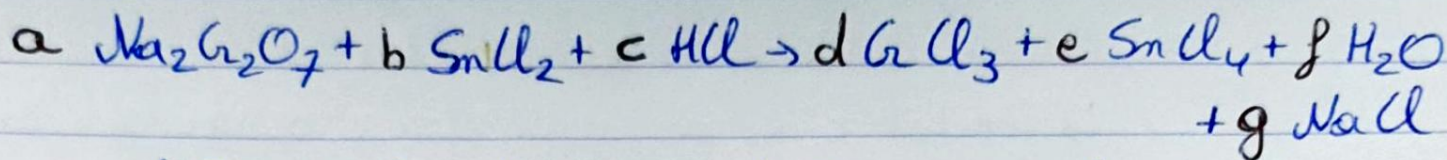 a Na₂Cr₂O₇ + b SnCl₂ + c HCl → d CrCl₃ + e SnCl₄ + f H₂O
+ g NaCl